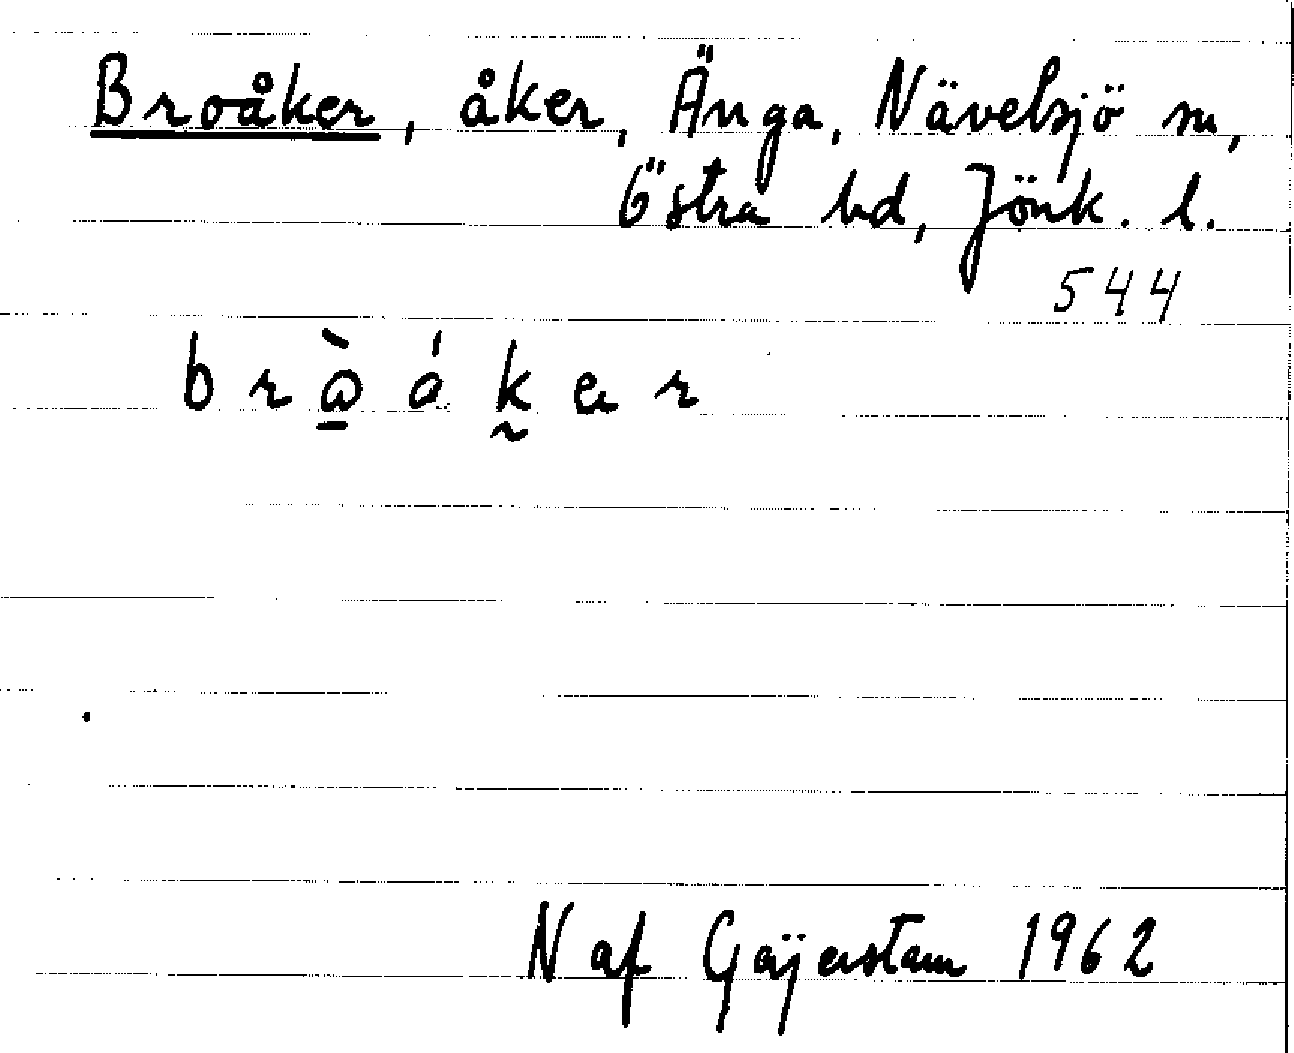 Broåker, åker, Änga, Nävelsjö sn,
Östra hd, Jönk. l.
544
N af Gäijerstam 1962